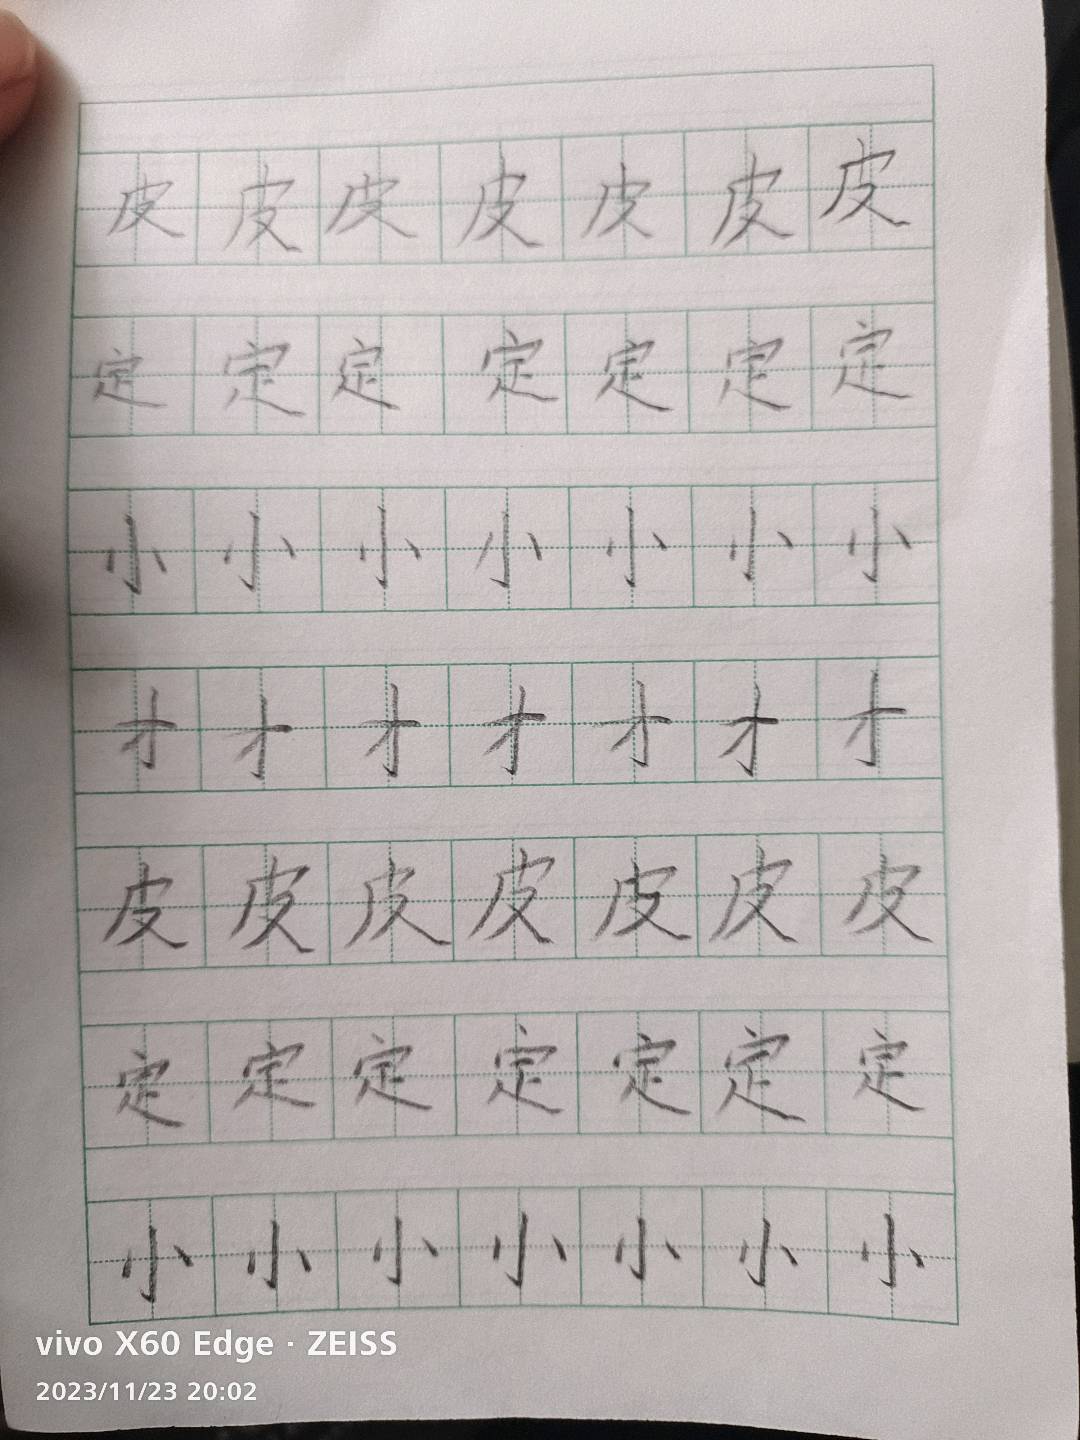 皮皮皮皮皮皮皮
定定定定定定定
小小小小小小小
才才才才才才才
皮皮皮皮皮皮皮
定定定定定定定
小小小小小小小
vivo X60 Edge · ZEISS
2023/11/23 20:02